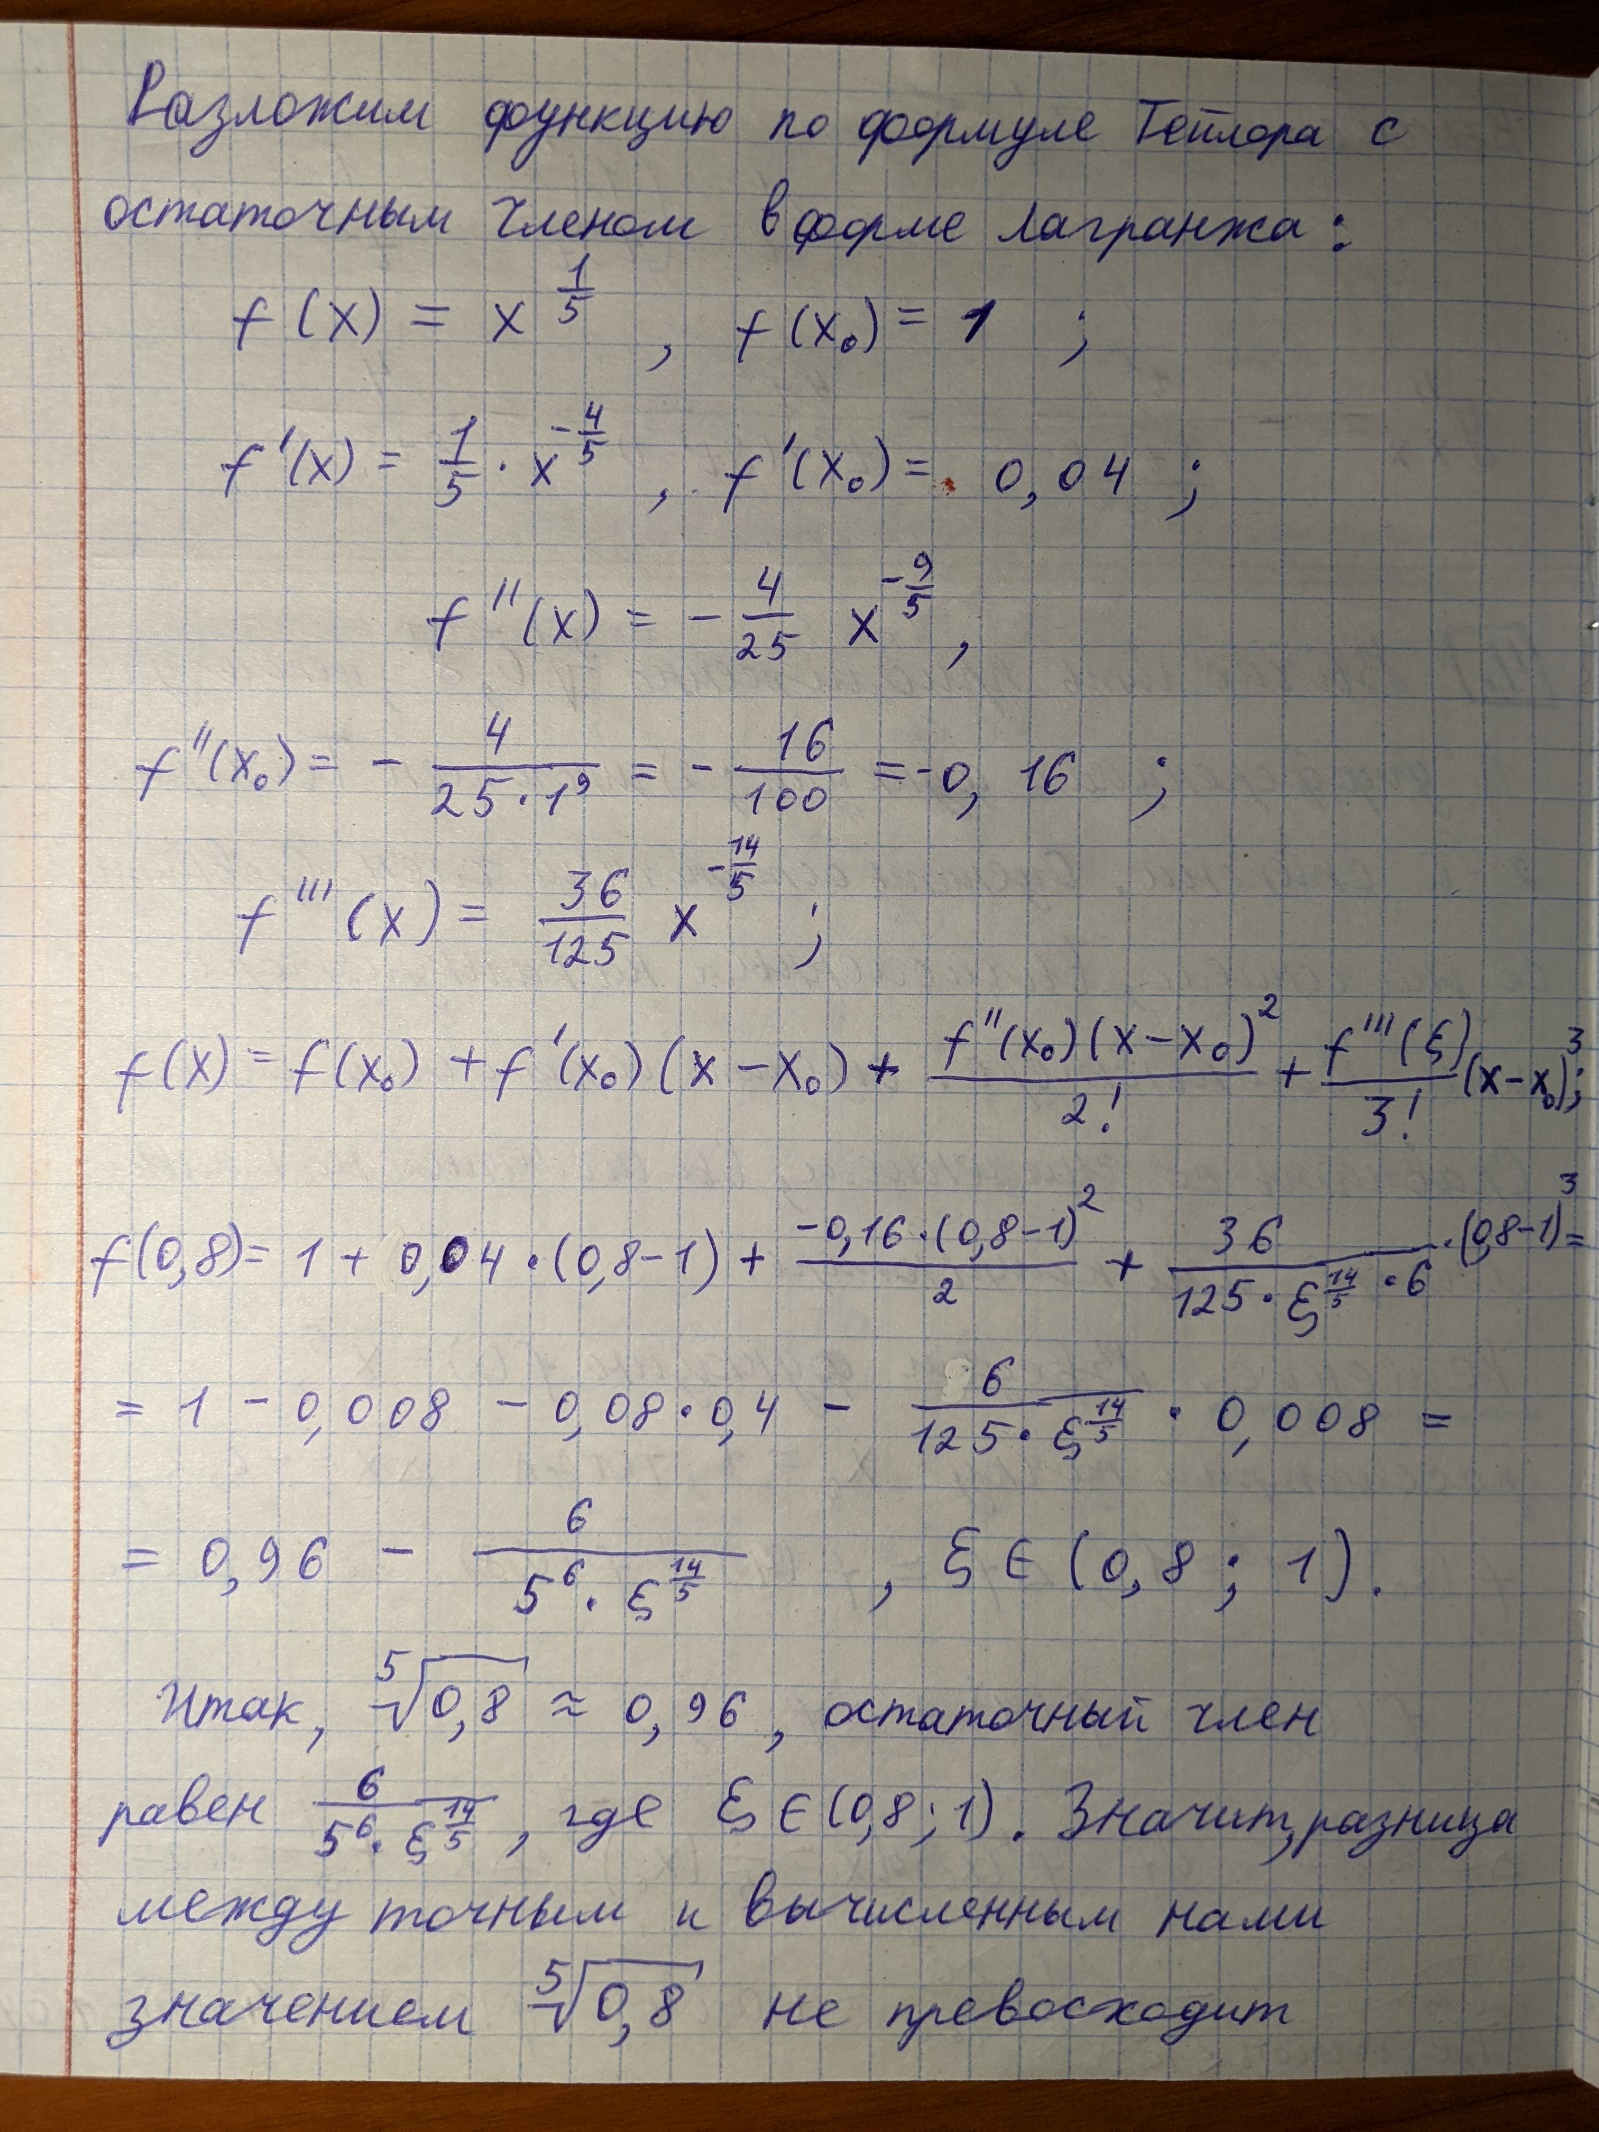 Разложим функцию по формуле Тейлора с
остаточным членом в форме Лагранжа:
f(x) = x^{1/5}, f(x₀) = 1;
f'(x) = 1/5 · x^{-4/5}, f'(x₀) = 0,04;
f''(x) = - 4/25 x^{-9/5},
f''(x₀) = - 4/(25·1⁹) = - 16/100 = -0,16;
f'''(x) = 36/125 x^{-14/5};
f(x) = f(x₀) + f'(x₀)(x-x₀) + f''(x₀)(x-x₀)²/2! + f'''(ξ)/3! (x-x₀)³;
f(0,8) = 1 + 0,04·(0,8-1) + -0,16·(0,8-1)²/2 + 36/(125·ξ^{14/5}·6)·(0,8-1)³ =
= 1 - 0,008 - 0,08·0,4 - 6/(125·ξ^{14/5}) · 0,008 =
= 0,96 - 6/(5⁶·ξ^{14/5}), ξ ∈ (0,8; 1).
Итак, ⁵√0,8 ≈ 0,96, остаточный член
равен 6/(5⁶·ξ^{14/5}), где ξ ∈ (0,8; 1). Значит, разница
между точным и вычисленным нами
значением ⁵√0,8 не превосходит